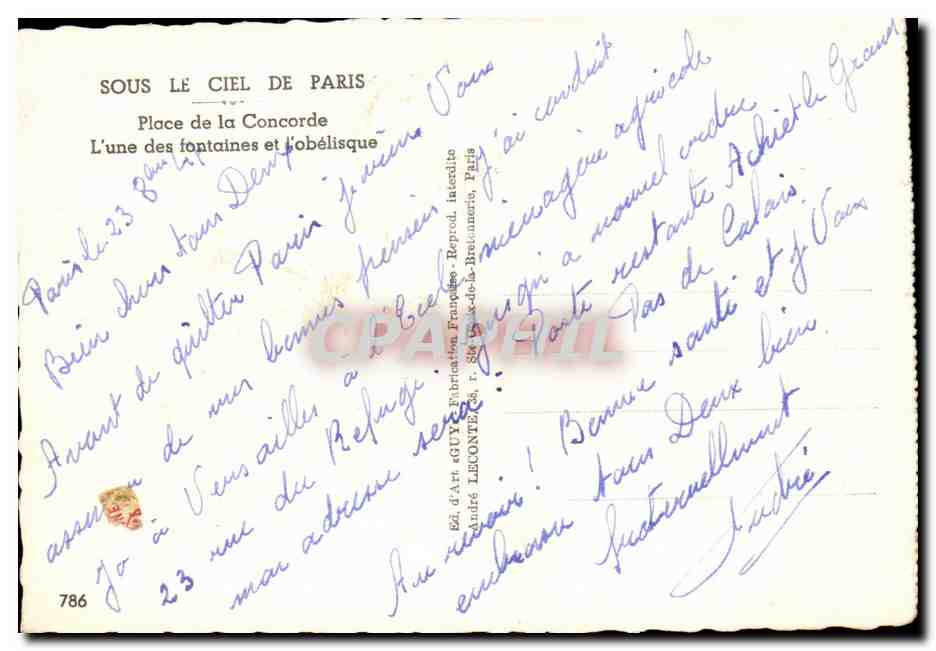 SOUS LE CIEL DE PARIS
Place de la Concorde
L'une des fontaines et l'obélisque
Paris le 23
Bien chers tous Deux
Avant de quitter Paris je viens Vous
de mes bonnes pensées j'ai conduit
Jo à Versailles à l'Ecole ménagère agricole
23 rue du Refuge. jusqu'à nouvel ordre
mon adresse sera : Poste restante Achiet le Grand
Pas de Calais.
Au revoir ! Bonne santé et je Vous
embrasse tous Deux bien
fraternellement
Ed. d'Art «GUY» Fabrication Française - Reprod. interdite
André LECONTE, 38, r. Ste-Croix-de-la-Bretonnerie, Paris
CPAPHIL
786